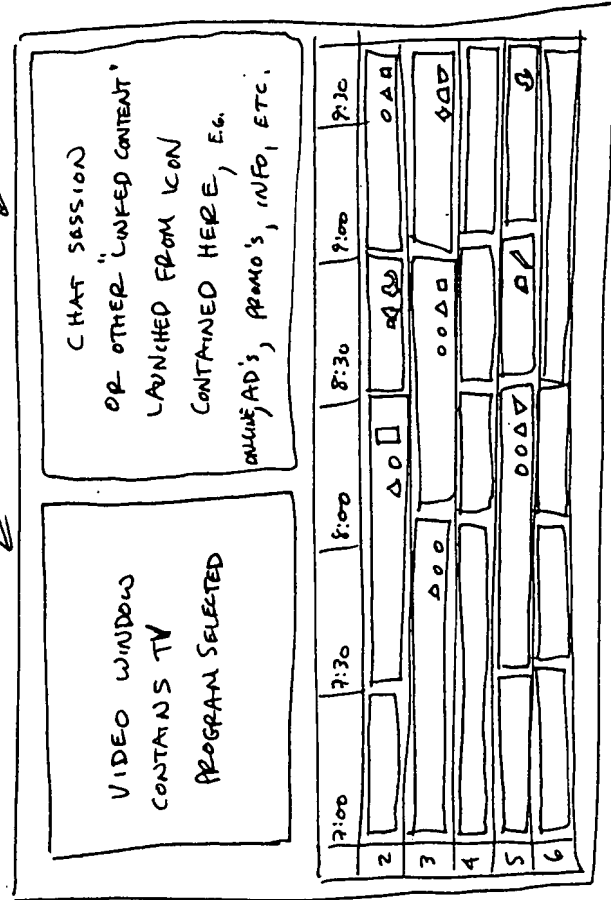 VIDEO WINDOW
CONTAINS TV
PROGRAM SELECTED
CHAT SESSION
OR OTHER "LINKED CONTENT"
LAUNCHED FROM ICON
CONTAINED HERE, E.G.
ONLINE, AD'S, PROMO'S, INFO, ETC.
7:00 7:30 8:00 8:30 9:00 9:30
2
3
4
5
6